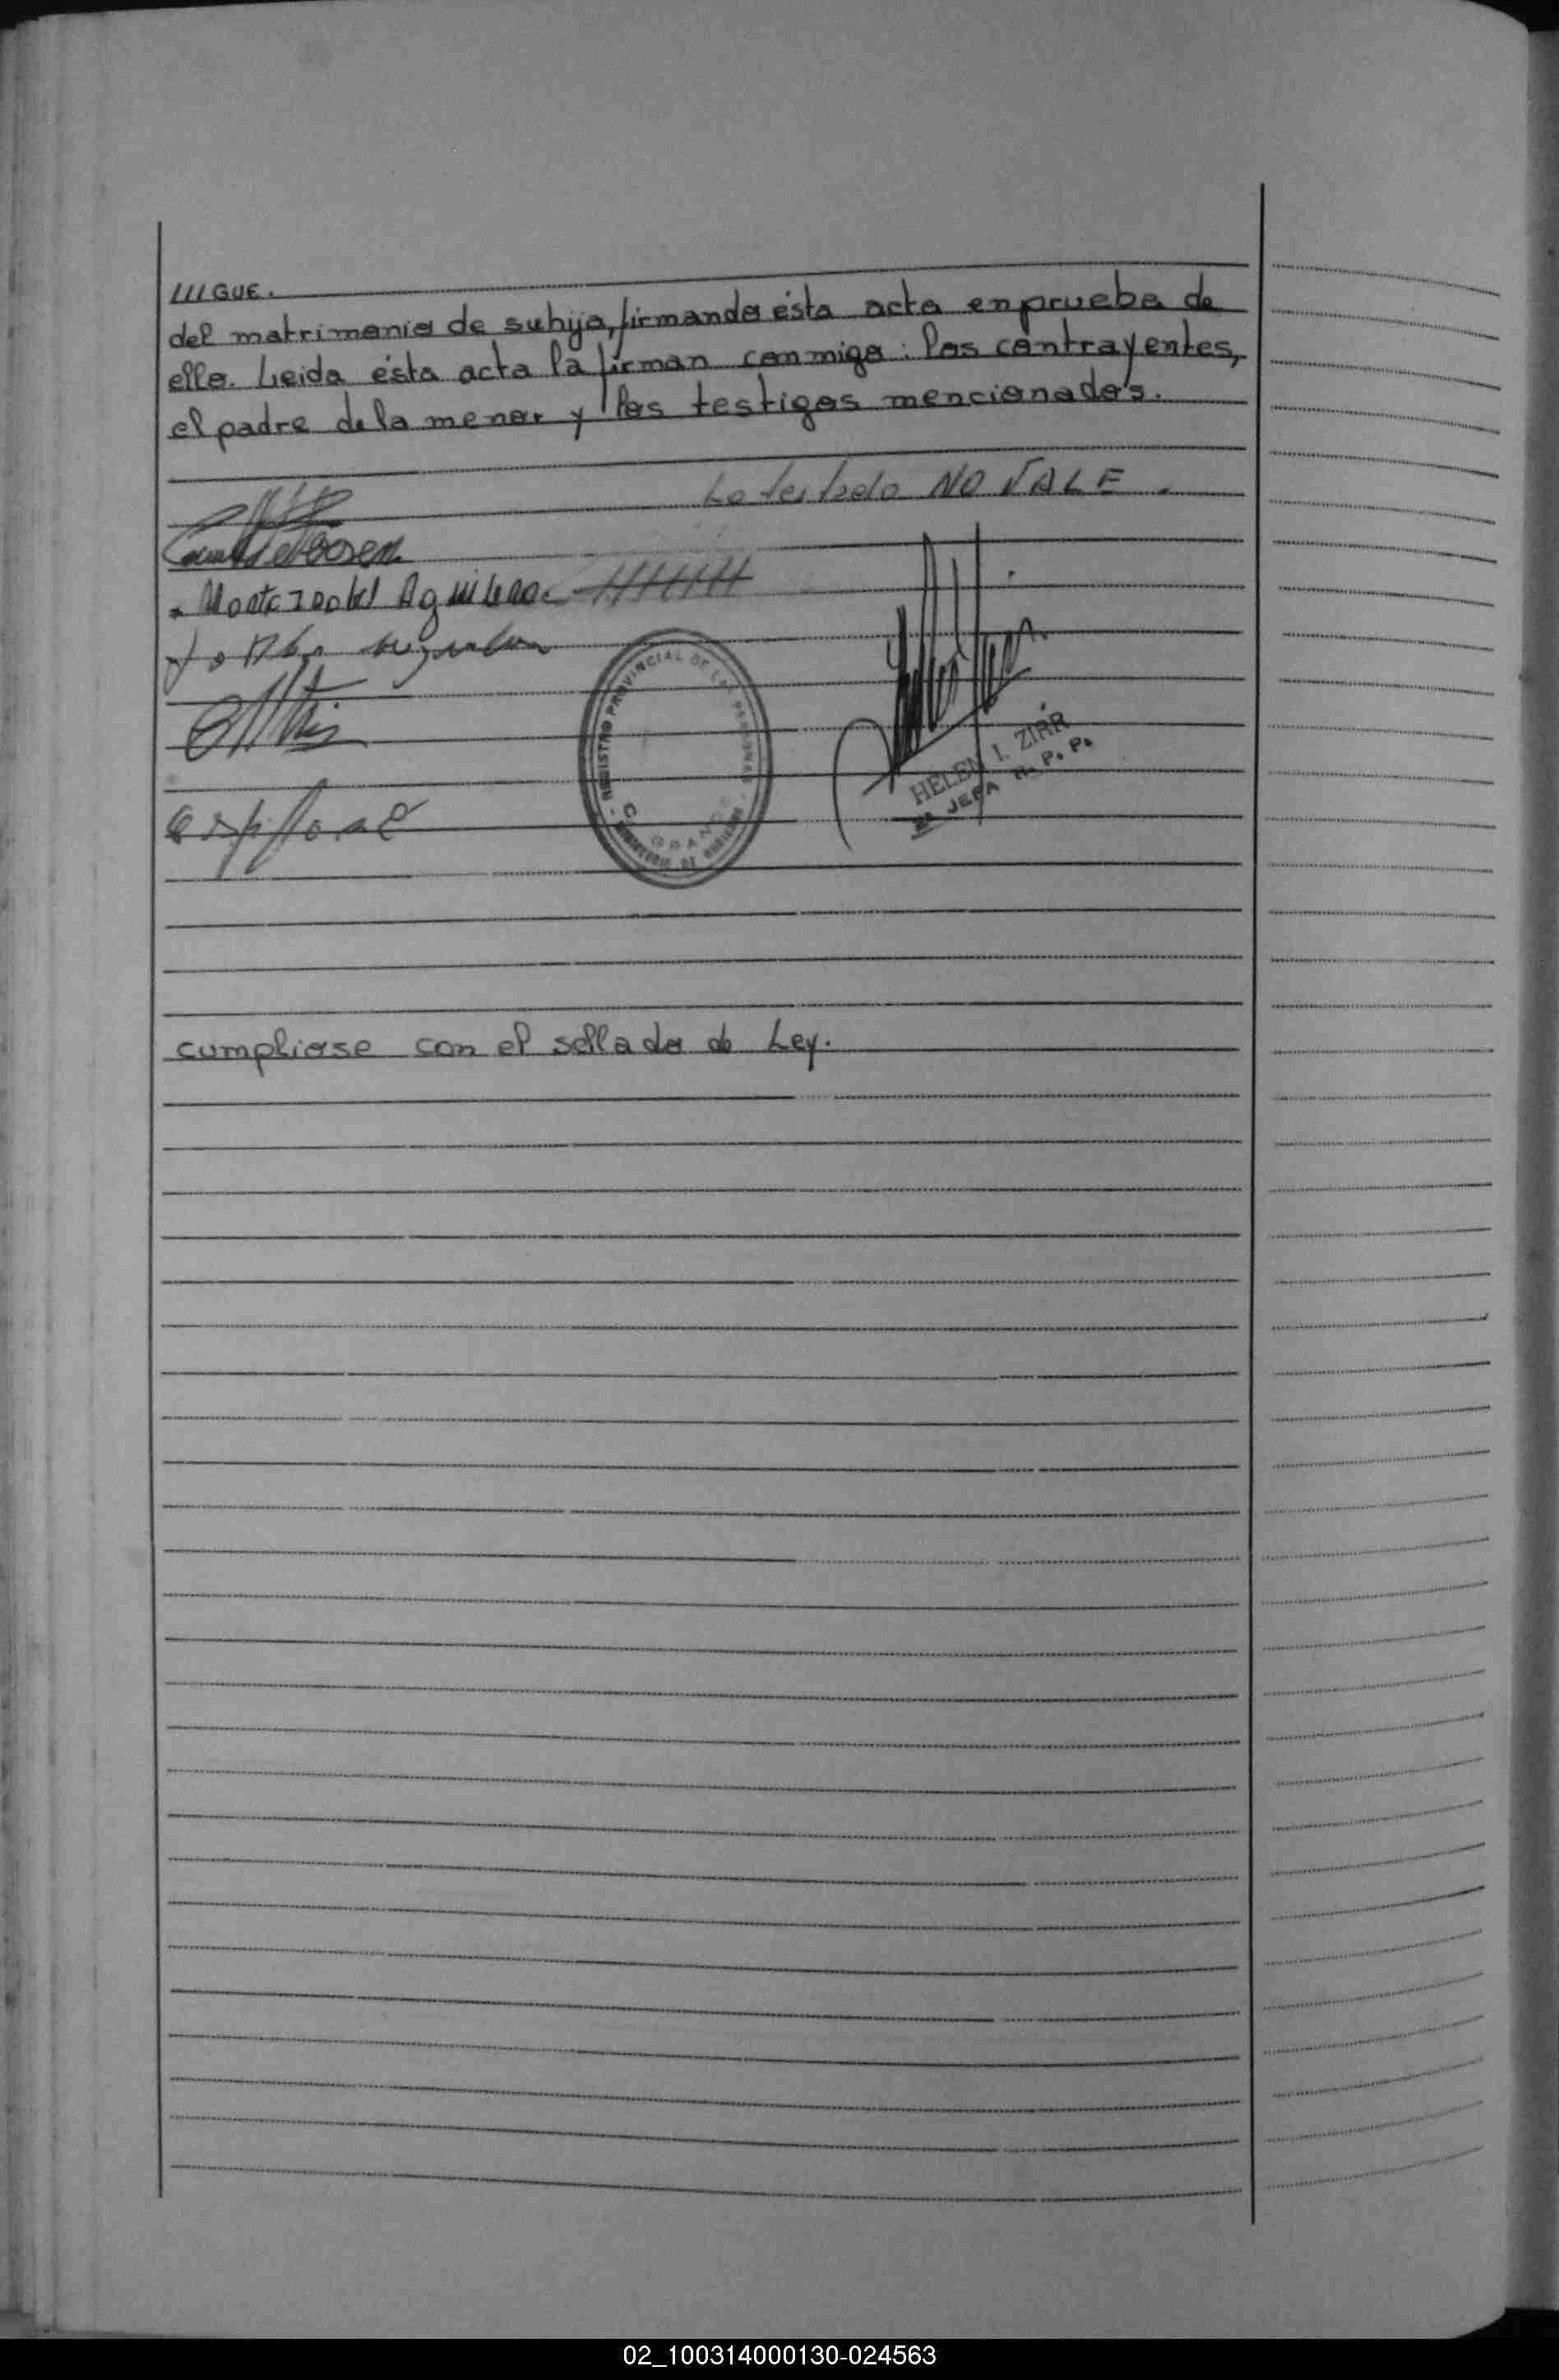 ///GUE.
del matrimonio de su hija, firmando ésta acta en prueba de
ello. Leida ésta acta la firman conmigo: los contrayentes,
el padre de la menor y los testigos mencionados.
Lo testado NO VALE.
Aguilera
REGISTRO PROVINCIAL DE LAS PERSONAS
HELEN I. ZIRR
2ª JEFA R. P. P.
cumpliose con el sellado de Ley.
02_100314000130-024563